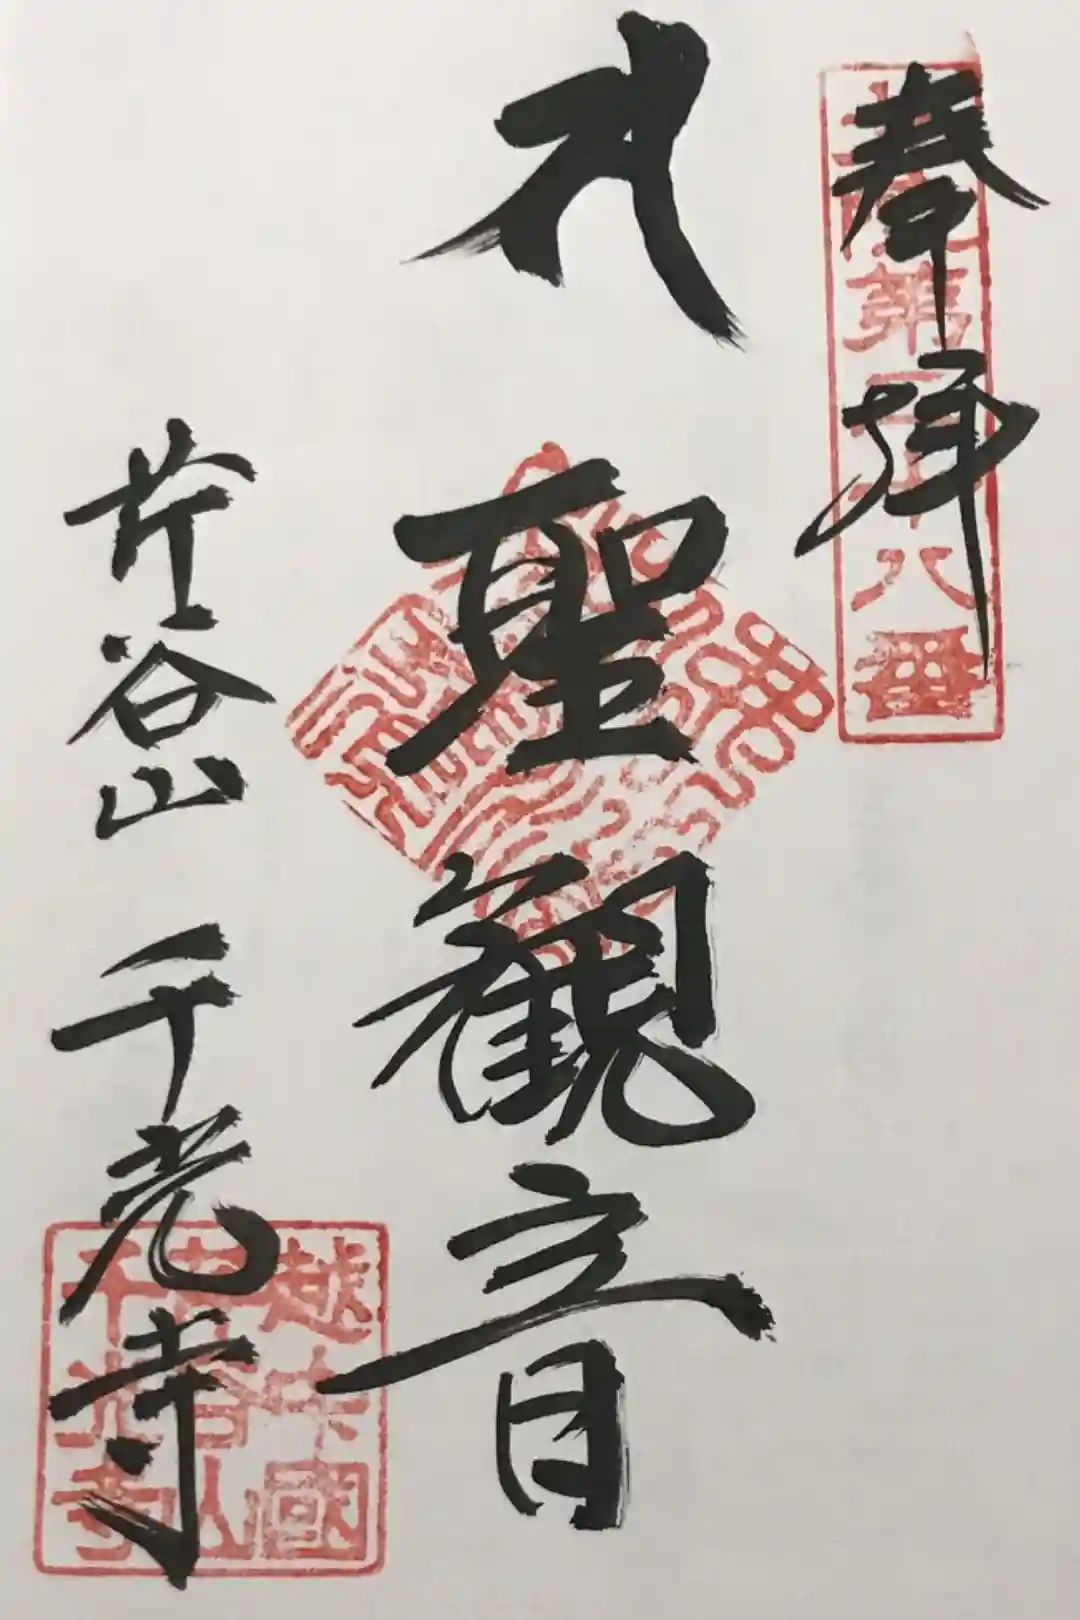 奉拝
北陸第二十八番
𑖭
聖観音
芹谷山 千光寺
越中國
芹谷山
千光寺